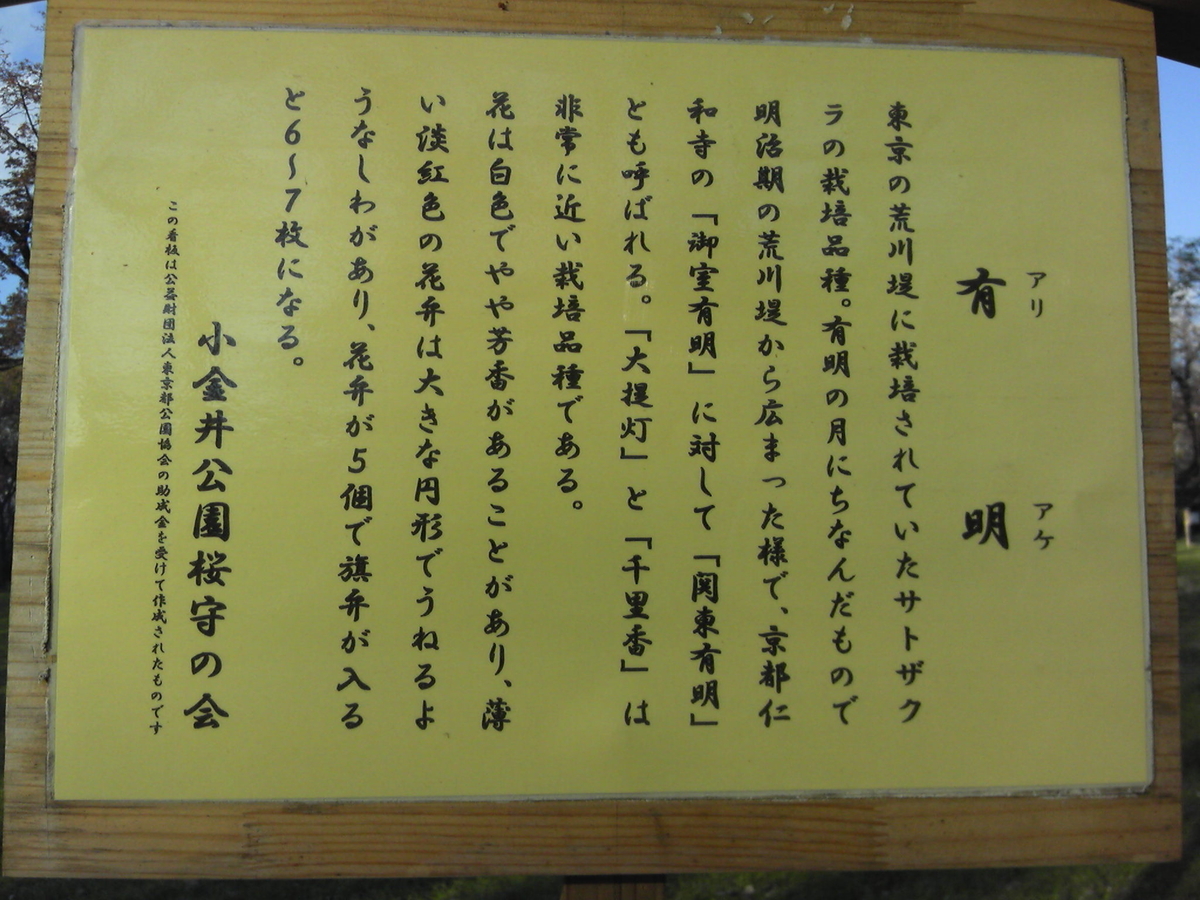 アリ アケ
有 明
東京の荒川堤に栽培されていたサトザク
ラの栽培品種。有明の月にちなんだもので
明治期の荒川堤から広まった様で、京都仁
和寺の「御室有明」に対して「関東有明」
とも呼ばれる。「大提灯」と「千里香」は
非常に近い栽培品種である。
花は白色でやや芳香があることがあり、薄
い淡紅色の花弁は大きな円形でうねるよ
うなしわがあり、花弁が5個で旗弁が入る
と6~7枚になる。
小金井公園桜守の会
この看板は公益財団法人東京都公園協会の助成金を受けて作成されたものです